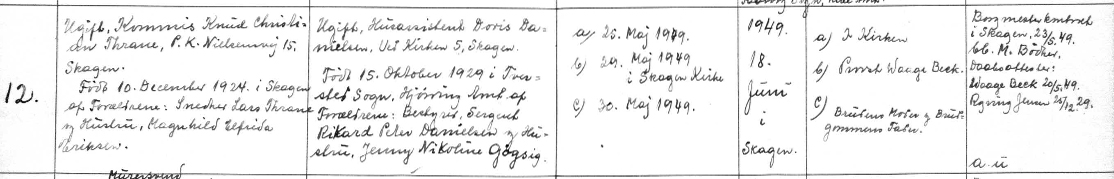 12.
Ugift, Kommis Knud Christi-
an Thrane, P. K. Nielsensvej 15,
Skagen.
Født 10. December 1924. i Skagen
af Forældrene: Smedker Lars Thrane
og Hustru, Magnhild Elfrida
Eriksen.
Ugift, Husassistent Doris Da-
nielsen, Ved Kirken 5, Skagen.
Født 15. Oktober 1929 i Tver-
sted Sogn, Hjørring Amt af
Forældrene: Bestyrer, Sergent
Rikard Peter Danielsen og Hu-
stru, Jenny Nikoline Gøgsig.
a) 20. Maj 1949.
b) 29. Maj 1949
i Skagen Kirke
c) 30. Maj 1949.
1949.
18.
Juni
i
Skagen.
a) I Kirken
b) Provst Waage Beck.
c) Brudens Moder og Brud-
gommens Fader.
Borgmesterkontoret
i Skagen, 23/5. 49.
M. Bødker.
Daabsattester:
Waage Beck 20/5. 49.
Jensen 29.
a. u
Murersvend